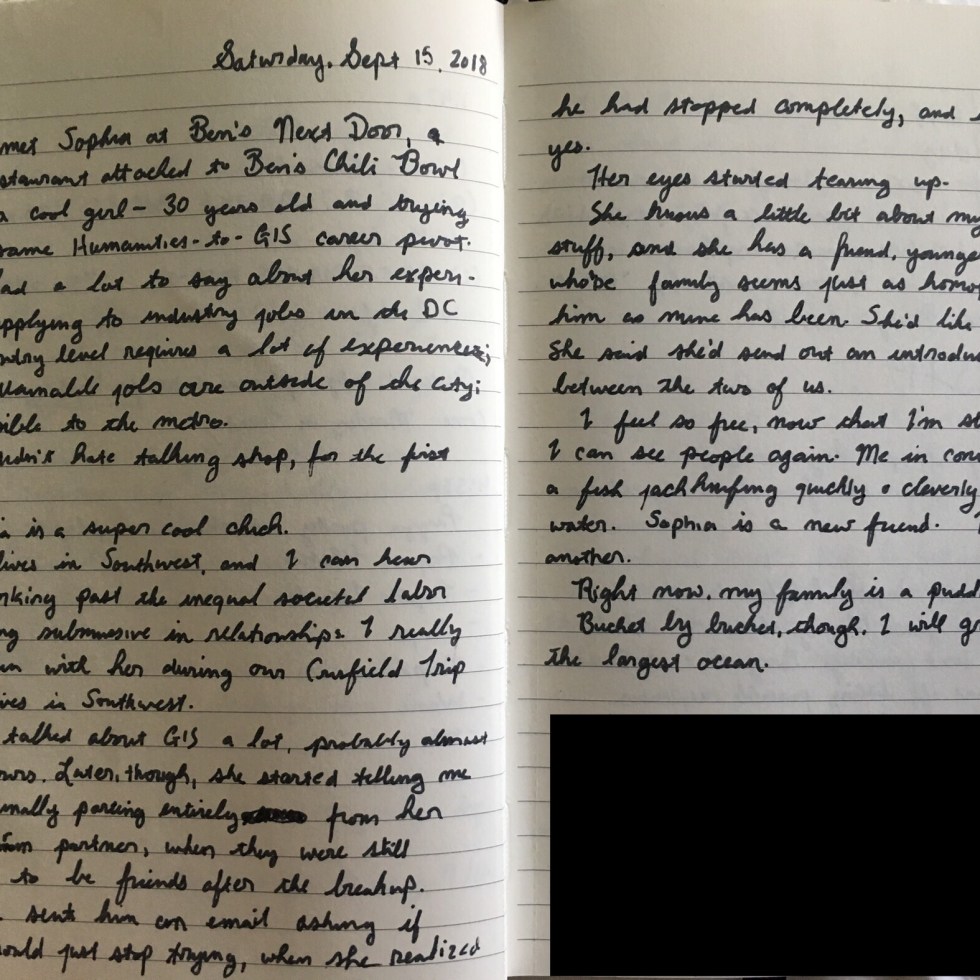 Saturday, Sept 15, 2018
met Sophia at Ben's Next Door, a
staurant attached to Ben's Chili Bowl
a cool girl - 30 years old and trying
same Humanities-to-GIS career pivot.
ad a lot to say about her experi-
pplying to industry jobs in the DC
ntry level requires a lot of experience;
jobs are outside of the city;
sible to the metro.
hate talking shop, for the first
a is a super cool chick.
lives in Southwest, and I can hear
rking past the inequal societal labor
ng submissive in relationships I really
un with her during our Canfield Trip
ves in Southwest.
talked about GIS a lot, probably almost
ours. Later, though, she started telling me
inally parting entirely from her
partner, when they were still
to be friends after the breakup.
sent him an email asking if
ould just stop trying, when she realized
he had stopped completely, and
yes.
Her eyes started tearing up.
She knows a little bit about my
stuff, and she has a friend, younger
who'se family seems just as homo
him as mine has been. She'd like
She said she'd send out an introdu
between the two of us.
I feel so free, now that I'm
I can see people again. Me in
a fish jackknifing quickly & cleverly
water. Sophia is a new friend.
another.
Right now, my family is a pudd
Bucket by bucket, though, I will gr
the largest ocean.